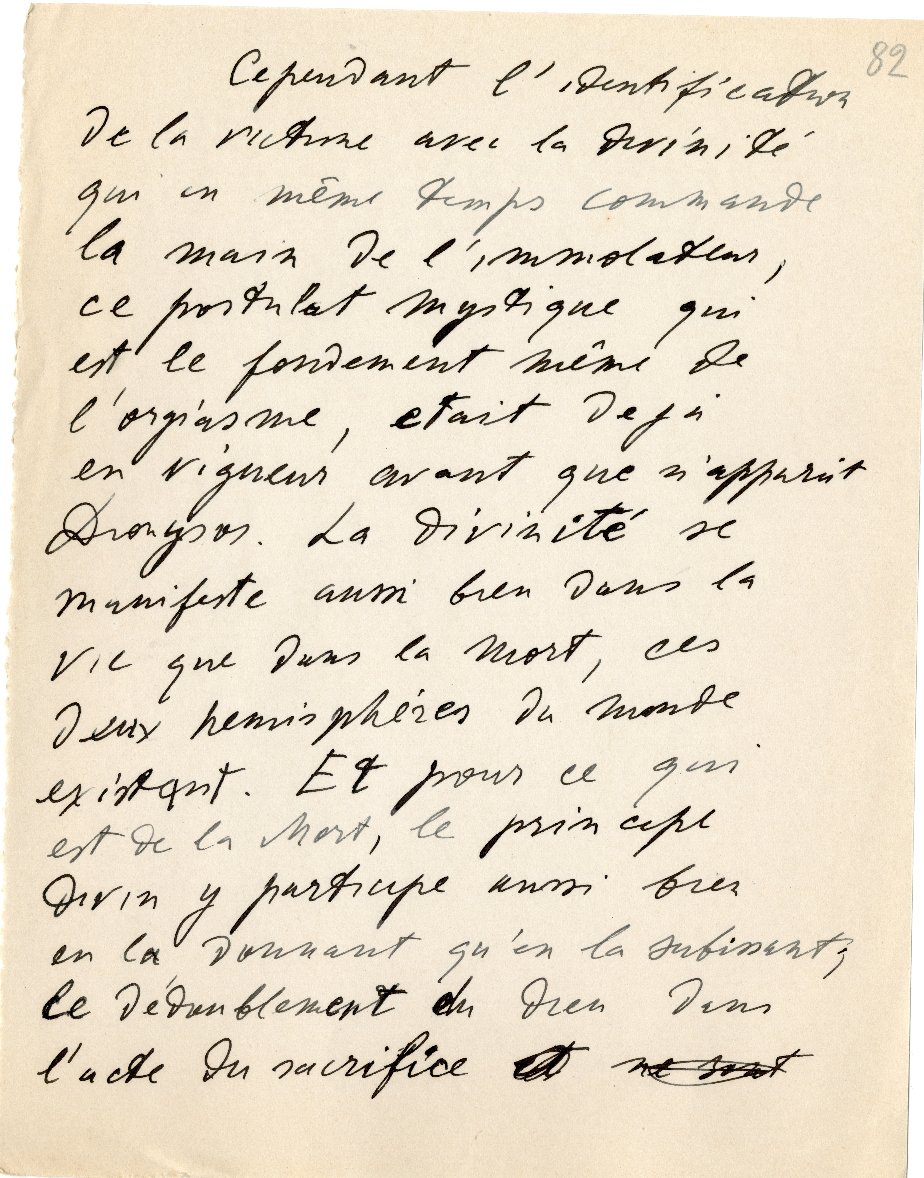 82
Cependant l'identification
de la victime avec la divinité
qui en même temps commande
la main de l'immolateur,
ce postulat mystique qui
est le fondement même de
l'orgiasme, etait deja
en vigueur avant que n'apparût
Dionysos. La divinité se
manifeste aussi bien dans la
vie que dans la mort, ces
deux hemisphéres du monde
existant. Et pour ce qui
est de la Mort, le principe
divin y participe aussi bien
en la donnant qu'en la subissant;
le dédoublement du dieu dans
l'acte du sacrifice